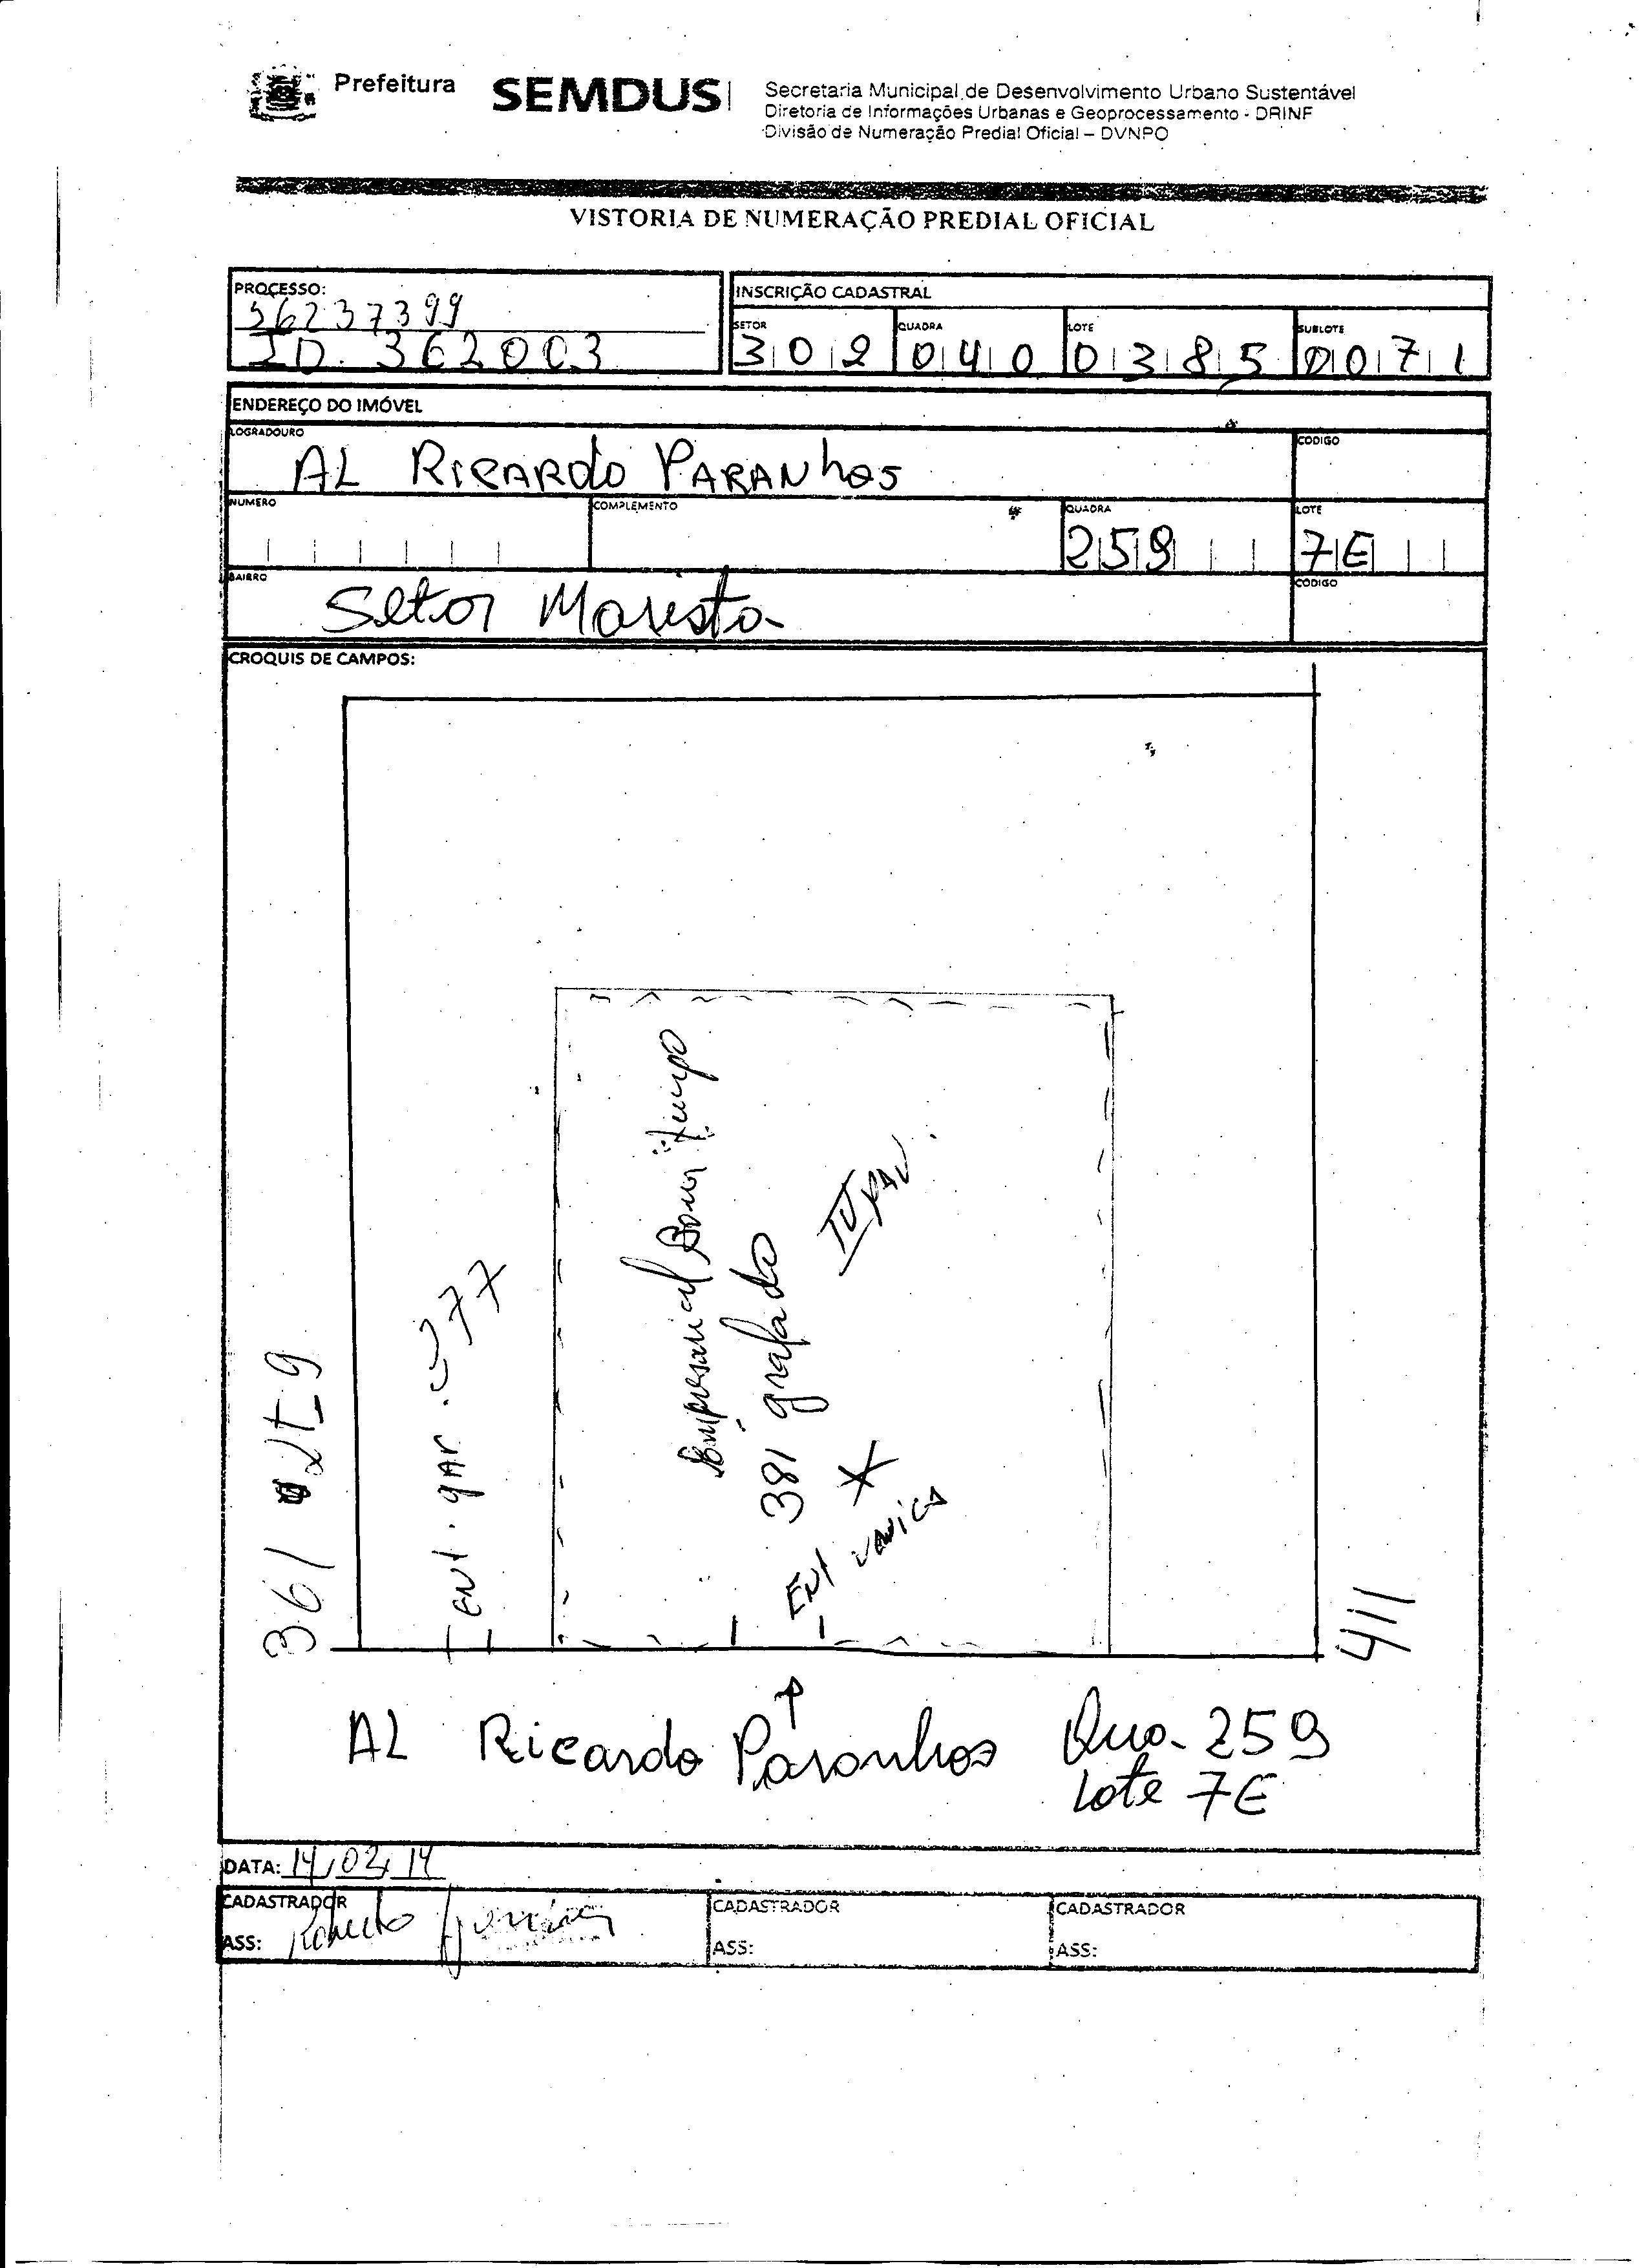 Prefeitura SEMDUS
Secretaria Municipal de Desenvolvimento Urbano Sustentável
Diretoria de Informações Urbanas e Geoprocessamento - DRINF
Divisão de Numeração Predial Oficial – DVNPO
VISTORIA DE NUMERAÇÃO PREDIAL OFICIAL
PROCESSO:
56237399
ID. 362003
INSCRIÇÃO CADASTRAL
SETOR QUADRA LOTE SUBLOTE
302 040 0385 0071
ENDEREÇO DO IMÓVEL
LOGRADOURO CODIGO
AL RICARDO PARANhos
NUMERO COMPLEMENTO QUADRA LOTE
259 7E
BAIRRO CODIGO
Setor Marista
CROQUIS DE CAMPOS:
361 Lt 9
ENt. gAr. 377
Empresarial Bom Tempo
381 grafado
IV PAV
ENt UNiCA
411
AL Ricardo Paranhos Qua. 259
Lote 7E
DATA: 14/02/14
CADASTRADOR CADASTRADOR CADASTRADOR
ASS: Roberto ASS: ASS: